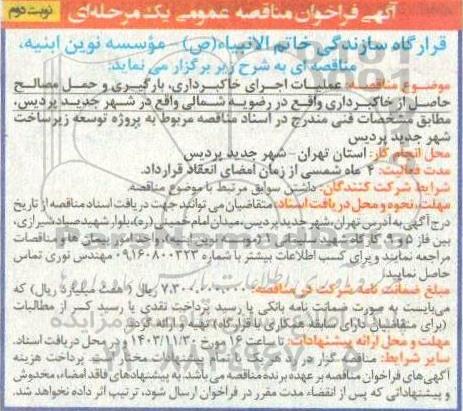 آگهی فراخوان مناقصه عمومی یک مرحله‌ای
نوبت دوم
قرارگاه سازندگی خاتم الانبیاء(ص) - مؤسسه نوین ابنیه،
مناقصه ای به شرح زیر برگزار می نماید:
موضوع مناقصه: عملیات اجرای خاکبرداری، بارگیری و حمل مصالح
حاصل از خاکبرداری واقع در رضویه شمالی واقع در شهر جدید پردیس،
مطابق مشخصات فنی مندرج در اسناد مناقصه مربوط به پروژه توسعه زیرساخت
شهر جدید پردیس
محل انجام کار: استان تهران - شهر جدید پردیس
مدت فعالیت: ۴ ماه شمسی از زمان امضای انعقاد قرارداد.
شرایط شرکت کنندگان: داشتن سوابق مرتبط با موضوع مناقصه
مهلت، نحوه و محل دریافت اسناد: متقاضیان می توانند جهت دریافت اسناد مناقصه از تاریخ
درج آگهی به آدرس تهران، شهر جدید پردیس، میدان امام خمینی (ره)، بلوار شهید صیاد شیرازی،
بین فاز ۵ و ۹، کارگاه شهید سلیمانی ۱ (موسسه نوین ابنیه)، واحد امور پیمان ها و مناقصات
مراجعه نمایند و برای کسب اطلاعات بیشتر با شماره ۰۹۱۶۰۸۰۰۳۲۳ مهندس نوری تماس
حاصل نمایید.
مبلغ ضمانت نامه شرکت در مناقصه: ۷.۳۰۰.۰۰۰.۰۰۰ ریال (هفت میلیارد ریال) که
می‌بایست به صورت ضمانت نامه بانکی یا رسید پرداخت نقدی یا رسید کسر از مطالبات
(برای متقاضیان دارای سابقه همکاری با قرارگاه) تهیه و ارائه گردد.
مهلت و محل ارائه پیشنهادات: تا ساعت ۱۶ مورخ ۱۴۰۳/۱۱/۳۰ و در محل دریافت اسناد.
سایر شرایط: مناقصه گزار در رد هر یک یا تمام پیشنهادات مختار است. پرداخت هزینه
آگهی‌های فراخوان مناقصه بر عهده برنده مناقصه می‌باشد. به پیشنهادهای فاقد امضاء، مخدوش
و پیشنهاداتی که پس از انقضاء مدت مقرر در فراخوان ارسال شود، ترتیب اثر داده نخواهد شد.